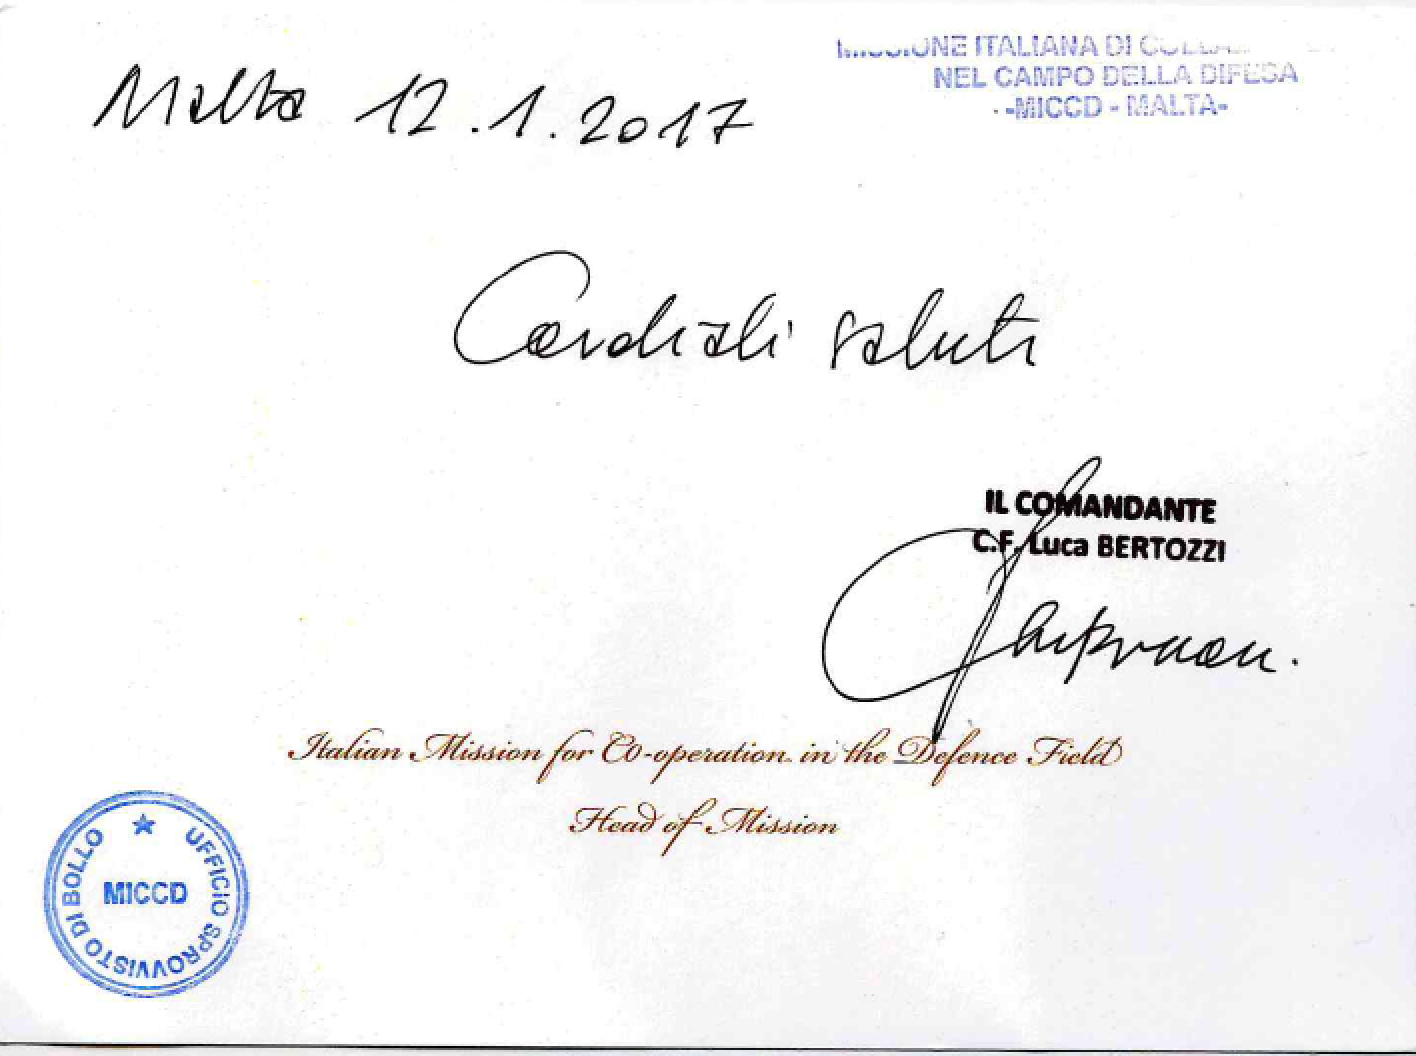 Malta 12.1.2017
ITALIANA DI
NEL CAMPO DELLA DIFESA
-MICCD - MALTA-
Cordiali saluti
IL COMANDANTE
C.F. Luca BERTOZZI
Italian Mission for Co-operation in the Defence Field
Head of Mission
UFFICIO SPROVVISTO DI BOLLO
MICCD